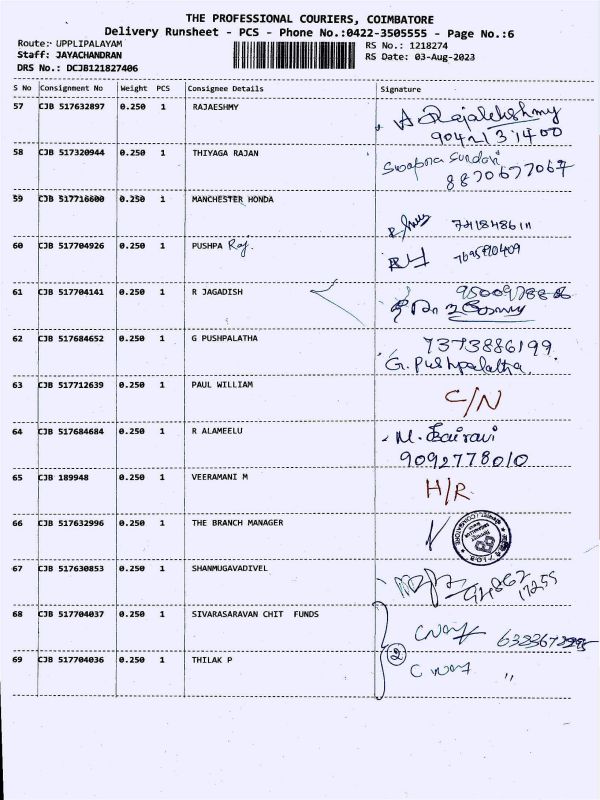 THE PROFESSIONAL COURIERS, COIMBATORE
Delivery Runsheet - PCS - Phone No.:0422-3505555 - Page No.:6
Route:- UPPLIPALAYAM
RS No.: 1218274
Staff: JAYACHANDRAN
RS Date: 03-Aug-2023
DRS No.: DCJB121827406
S No Consignment No Weight PCS Consignee Details Signature
57 CJB 517632897 0.250 1 RAJAESHMY A Rajalekshmy
9042131400
58 CJB 517320944 0.250 1 THIYAGA RAJAN Swapna Sundari
8870677067
59 CJB 517716600 0.250 1 MANCHESTER HONDA
60 CJB 517704926 0.250 1 PUSHPA Raj. 7695910409
61 CJB 517704141 0.250 1 R JAGADISH
62 CJB 517684652 0.250 1 G PUSHPALATHA 7373886199
G. Pushpalatha.
63 CJB 517712639 0.250 1 PAUL WILLIAM C/N
64 CJB 517684684 0.250 1 R ALAMEELU M. Bairavi
9092778010
65 CJB 189948 0.250 1 VEERAMANI M H/R.
66 CJB 517632996 0.250 1 THE BRANCH MANAGER
67 CJB 517630853 0.250 1 SHANMUGAVADIVEL
68 CJB 517704037 0.250 1 SIVARASARAVAN CHIT FUNDS
2
69 CJB 517704036 0.250 1 THILAK P "